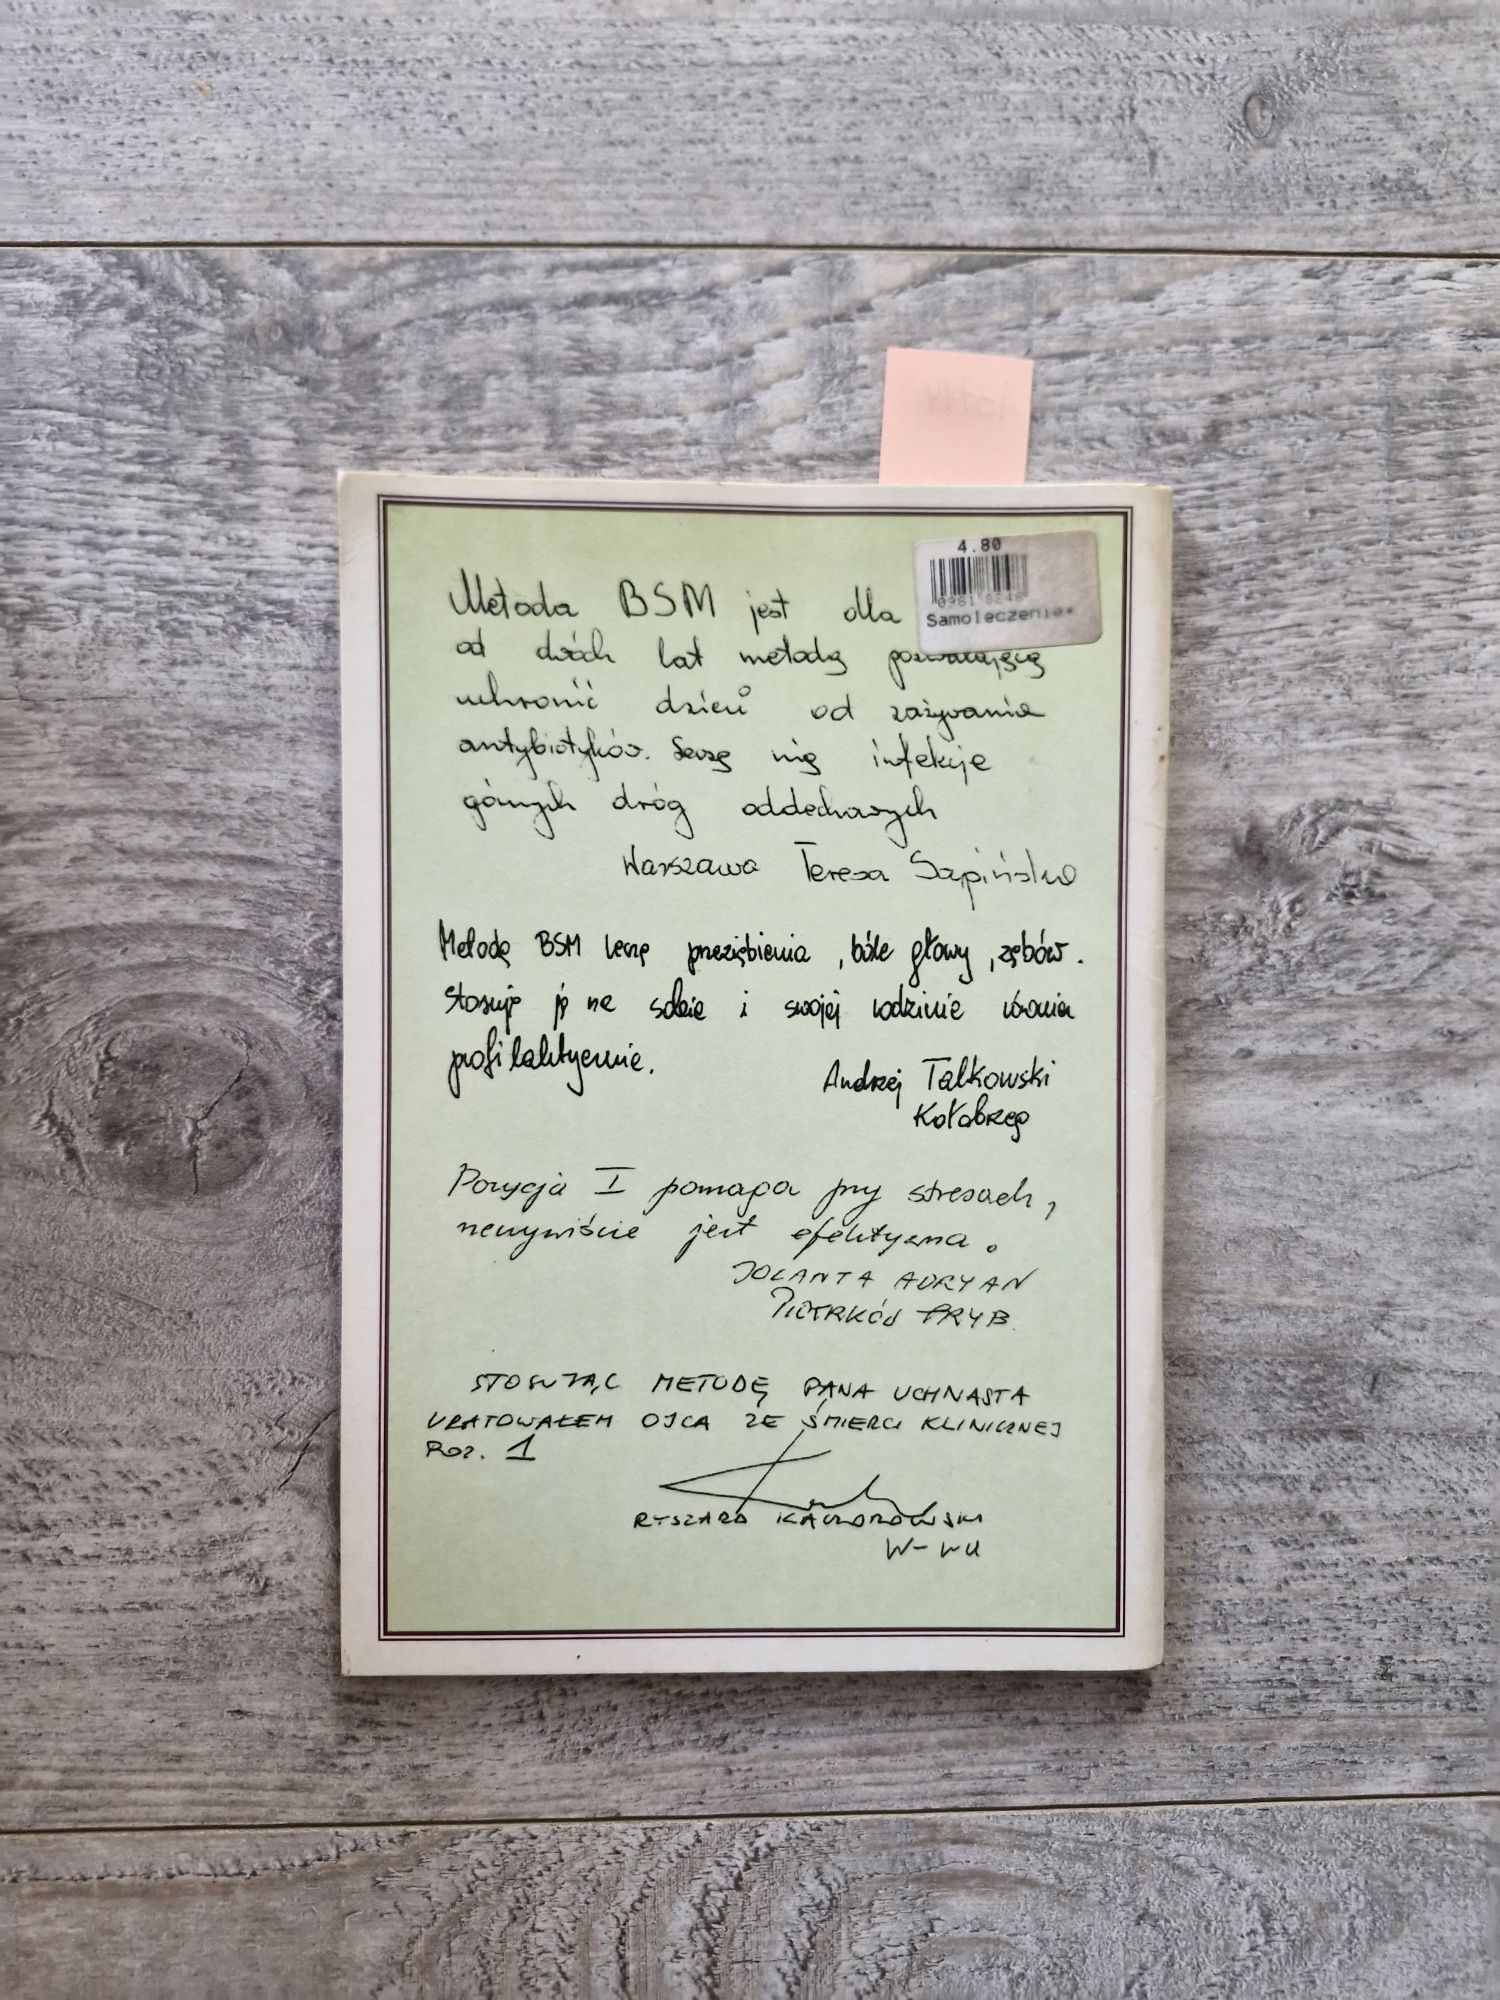 4.80
0981 8248
Samoleczenie*
Metoda BSM jest dla
od dwóch lat metodą pozwalającą
uchronić dzieci od zażywania
antybiotyków. Leczę nią infekcje
górnych dróg oddechowych
Warszawa Teresa Sapińska
Metodą BSM leczę przeziębienia, bóle głowy, zębów.
Stosuję ją na sobie i swojej rodzinie również
profilaktycznie.
Andrzej Talkowski
Kołobrzeg
Pozycja I pomaga przy stresach,
rzeczywiście jest efektywna.
JOLANTA ADRYAN
PIOTRKÓW TRYB.
STOSUJĄC METODĘ PANA UCHNASTA
URATOWAŁEM OJCA ZE ŚMIERCI KLINICZNEJ
POZ. 1
RYSZARD KACZOROWSKI
W-WA